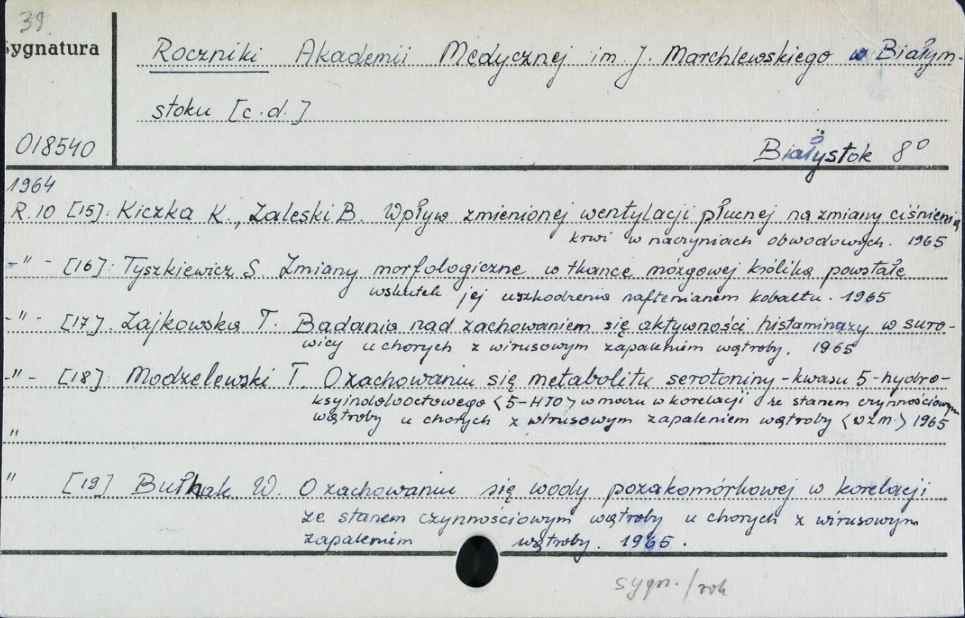 39.
Sygnatura
Roczniki Akademii Medycznej im J. Marchlewskiego w Białym-
stoku [c.d.]
018540
Białystok 8°
1964
R. 10 [15]. Kiczka K., Zaleski B. Wpływ zmienionej wentylacji płucnej na zmiany ciśnienia
krwi w naczyniach obwodowych. 1965
-"- [16]. Tyszkiewicz S. Zmiany morfologiczne w tkance mózgowej królika powstałe
wskutek jej uszkodzenia naftenianem kobaltu. 1965
-"- [17]. Zajkowska T. Badania nad zachowaniem się aktywności histaminazy w suro-
wicy u chorych z wirusowym zapaleniem wątroby. 1965
-"- [18]. Modzelewski T. O zachowaniu się metabolitu serotoniny - kwasu 5-hydro-
ksyindolooctowego <5-HJO> w moczu w korelacji ze stanem czynnościowym
wątroby u chorych z wirusowym zapaleniem wątroby <wzm> 1965
"
" [19] Bułhak W. O zachowaniu się wody pozakomórkowej w korelacji
ze stanem czynnościowym wątroby u chorych z wirusowym
zapaleniem wątroby. 1965.
sygn./rok